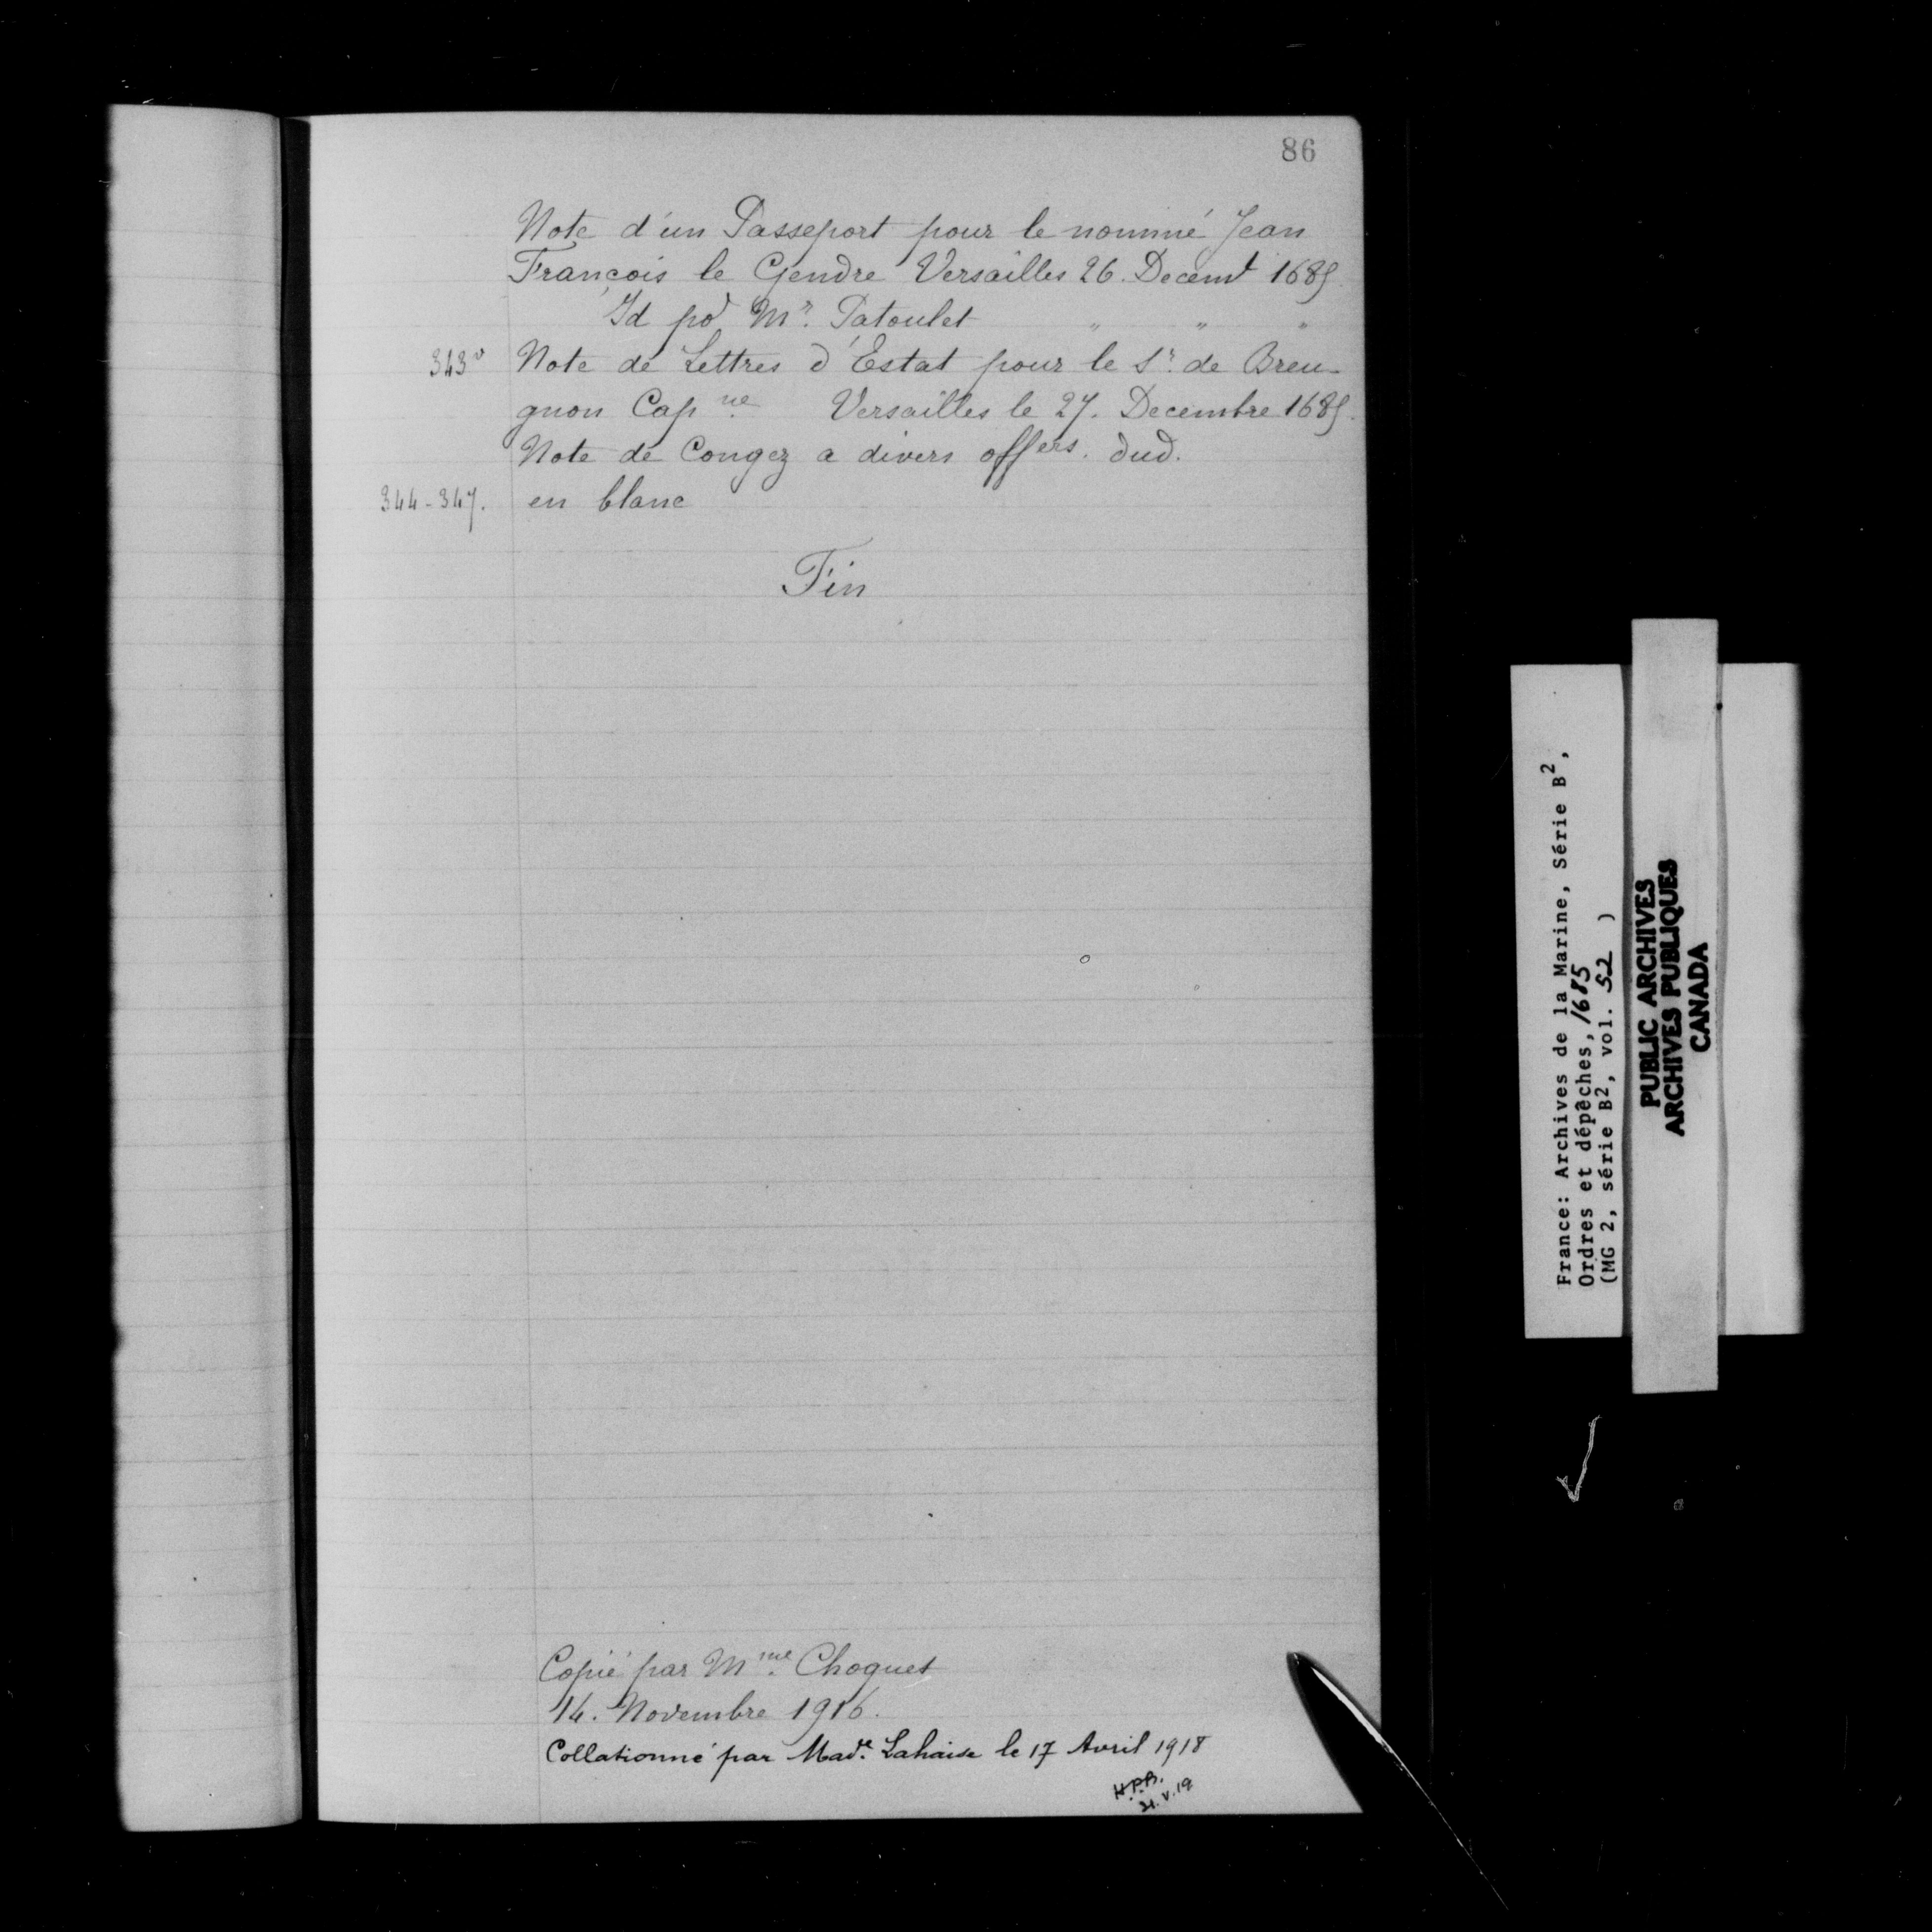 86
Note d'un Passeport pour le nommé Jean
François le Gendre Versailles 26. Decembr 1685
Id po Mr. Patoulet " " "
343v Note de Lettres d'Estat pour le Sr. de Breu-
gnon Capne. Versailles le 27. Decembre 1685.
Note de Congez a divers offers. dud.
344-347. en blanc
Fin
Copié par Mme. Choquet
14. Novembre 1916.
Collationné par Made. Lahaise le 17 Avril 1918
H.P.B.
21.V.19
France: Archives de la Marine, Série B2,
Ordres et dépêches, 1685
(MG 2, série B2, vol. 52 )
PUBLIC ARCHIVES
ARCHIVES PUBLIQUES
CANADA